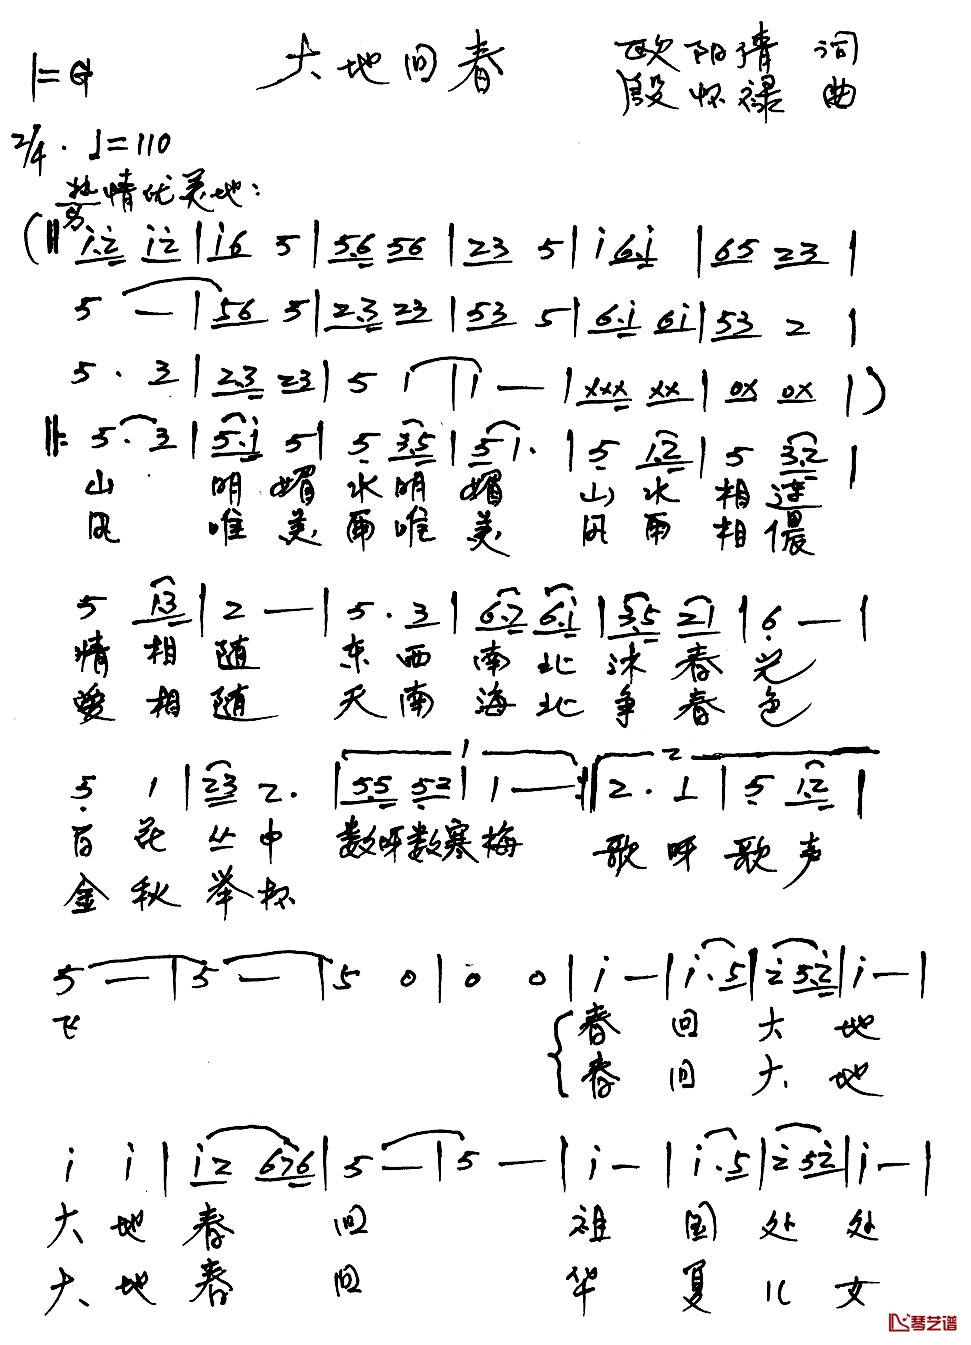 大地回春
欧阳清 词
殷怀禄 曲
1=G
2/4 . ♩=110
热情优美地：
(‖ i.2̇ i2̇ | i6 5 | 5.6 56 | 23 5 | i 6.i | 65 23 |
5 — | 56 5 | 2.3 23 | 53 5 | 6.i 6i | 53 2 |
5 . 3 | 2.3 23 | 5 1 | 1 — | xxx xx | 0x 0x | )
‖: 5 . 3 | 5.i 5 | 5̣ 3.5 | 5̣ 1 . | 5̣ 1.2 | 5 3.2 |
山 明 媚 水 明 媚 山 水 相 连
风 唯 美 雨 唯 美 风 雨 相 偎
5 1.3 | 2 — | 5 . 3 | 6.7 6.i | 3.5 21 | 6̣ — |
情 相 随 东 西 南 北 沐 春 光
爱 相 随 天 南 海 北 争 春 色
5̣ 1 | 23 2 . | 5.5 52 | 1 — :‖ 2 . 1 | 5̣ 1.2 |
百 花 丛 中 数呀数寒梅 歌 呀 歌 声
金 秋 举 杯
5 — | 5 — | 5 0 | 0 0 | i — | i . 5 | 2̇ 5.2̇ | i — |
飞 春 回 大 地
春 回 大 地
i i | i2 676 | 5 — | 5 — | i — | i . 5 | 2̇ 52̇ | i — |
大 地 春 回 祖 国 处 处
大 地 春 回 华 夏 儿 女
琴艺谱